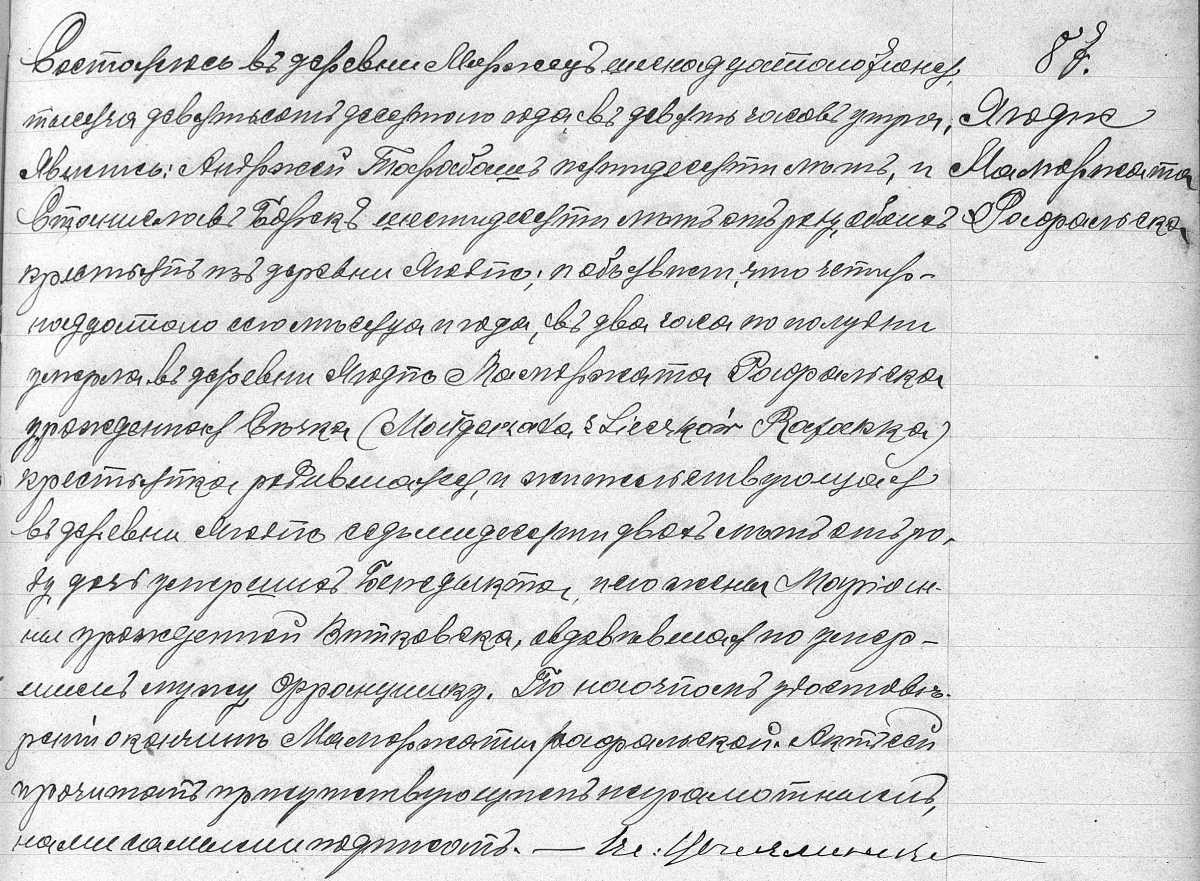 Состоялось въ деревни шестнадцатого Іюня,
тысяча девятьсотъ десятого года, въ девять часовъ утра,
Явились: Андржей Тарабашъ пятидесяти лѣтъ, и
Станиславъ шестидесяти лѣтъ отъ роду, обоихъ
крестьянъ изъ деревни и объявили, что четыр-
наддатого сего мѣсяца и года, въ два часа по полудни
умерла въ деревни Малгоржата Рафальска
урожденная (Małgorzata z Rafalska)
крестьянка родившаяся, и жительствующая
въ деревни седьмидесяти двохъ лѣтъ отъ ро-
ду, дочь умершихъ Бенедикта, и его жены Марiан-
ны урожденной Витковска, овдовѣвшая по умер-
шимъ мужу Францишку. По наочномъ удостовѣ-
ренiи о кончинѣ Малгоржаты Рафальской. Актъ сей
прочитанъ присутствующимъ неграмотнымъ,
нами самыми подписанъ. —
87.
Малгоржата
Рафальска